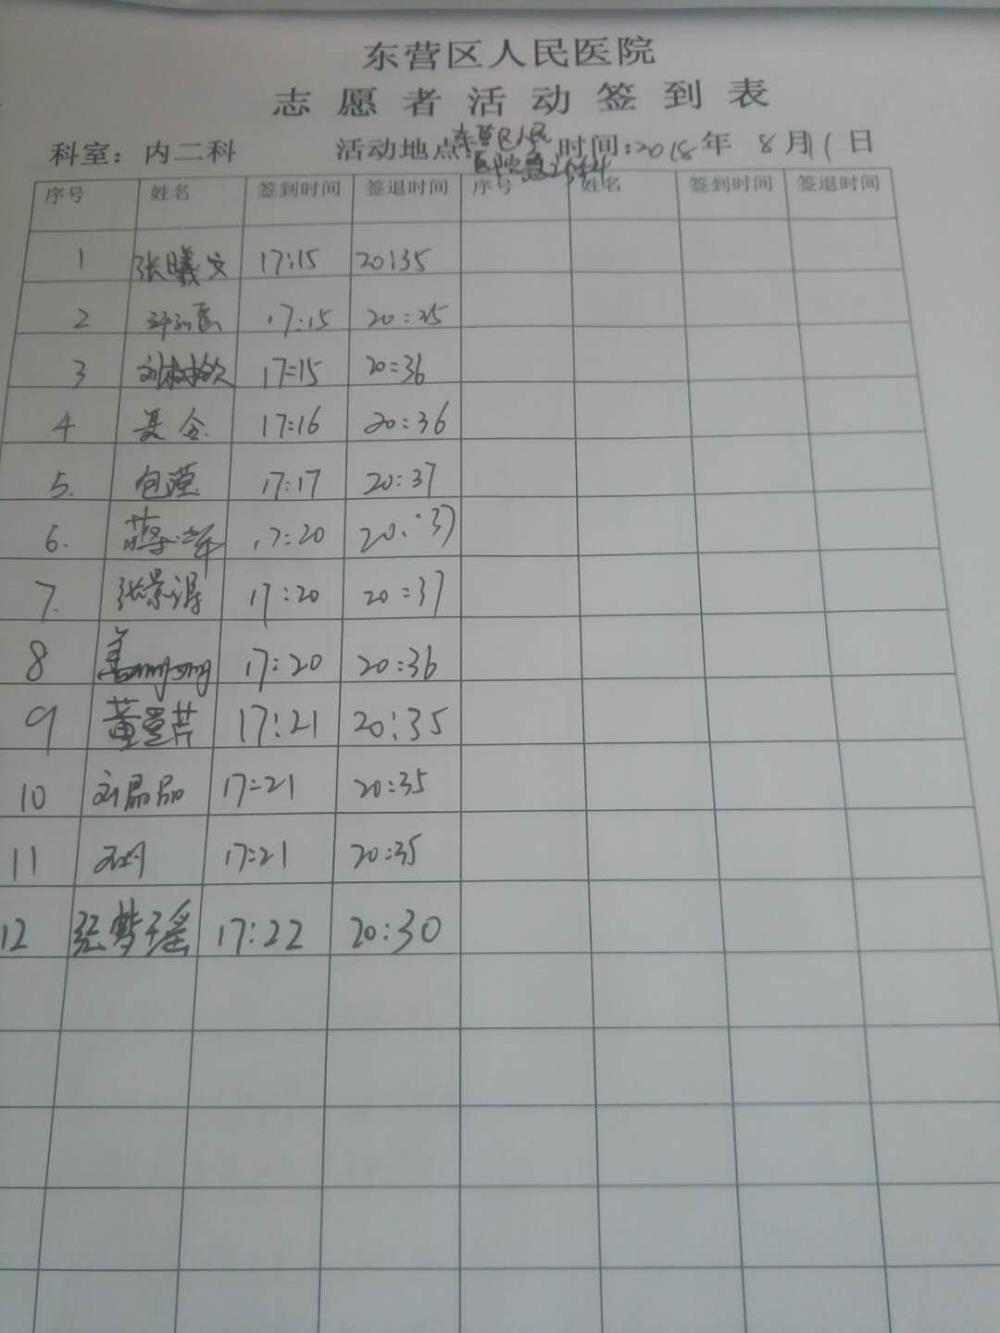 东营区人民医院
志愿者活动签到表
科室：内二科 活动地点：东营区人民医院 时间：2018年 8月11日
序号 姓名 签到时间 签退时间 序号 姓名 签到时间 签退时间
1 张曦文 17:15 20:35
2 17:15 20:35
3 刘 17:15 20:36
4 17:16 20:36
5. 包 17:17 20:37
6. 17:20 20:37
7. 张景 17:20 20:37
8 姜 17:20 20:36
9 董 17:21 20:35
10 刘晶晶 17:21 20:35
11 17:21 20:35
12 张梦瑶 17:22 20:30